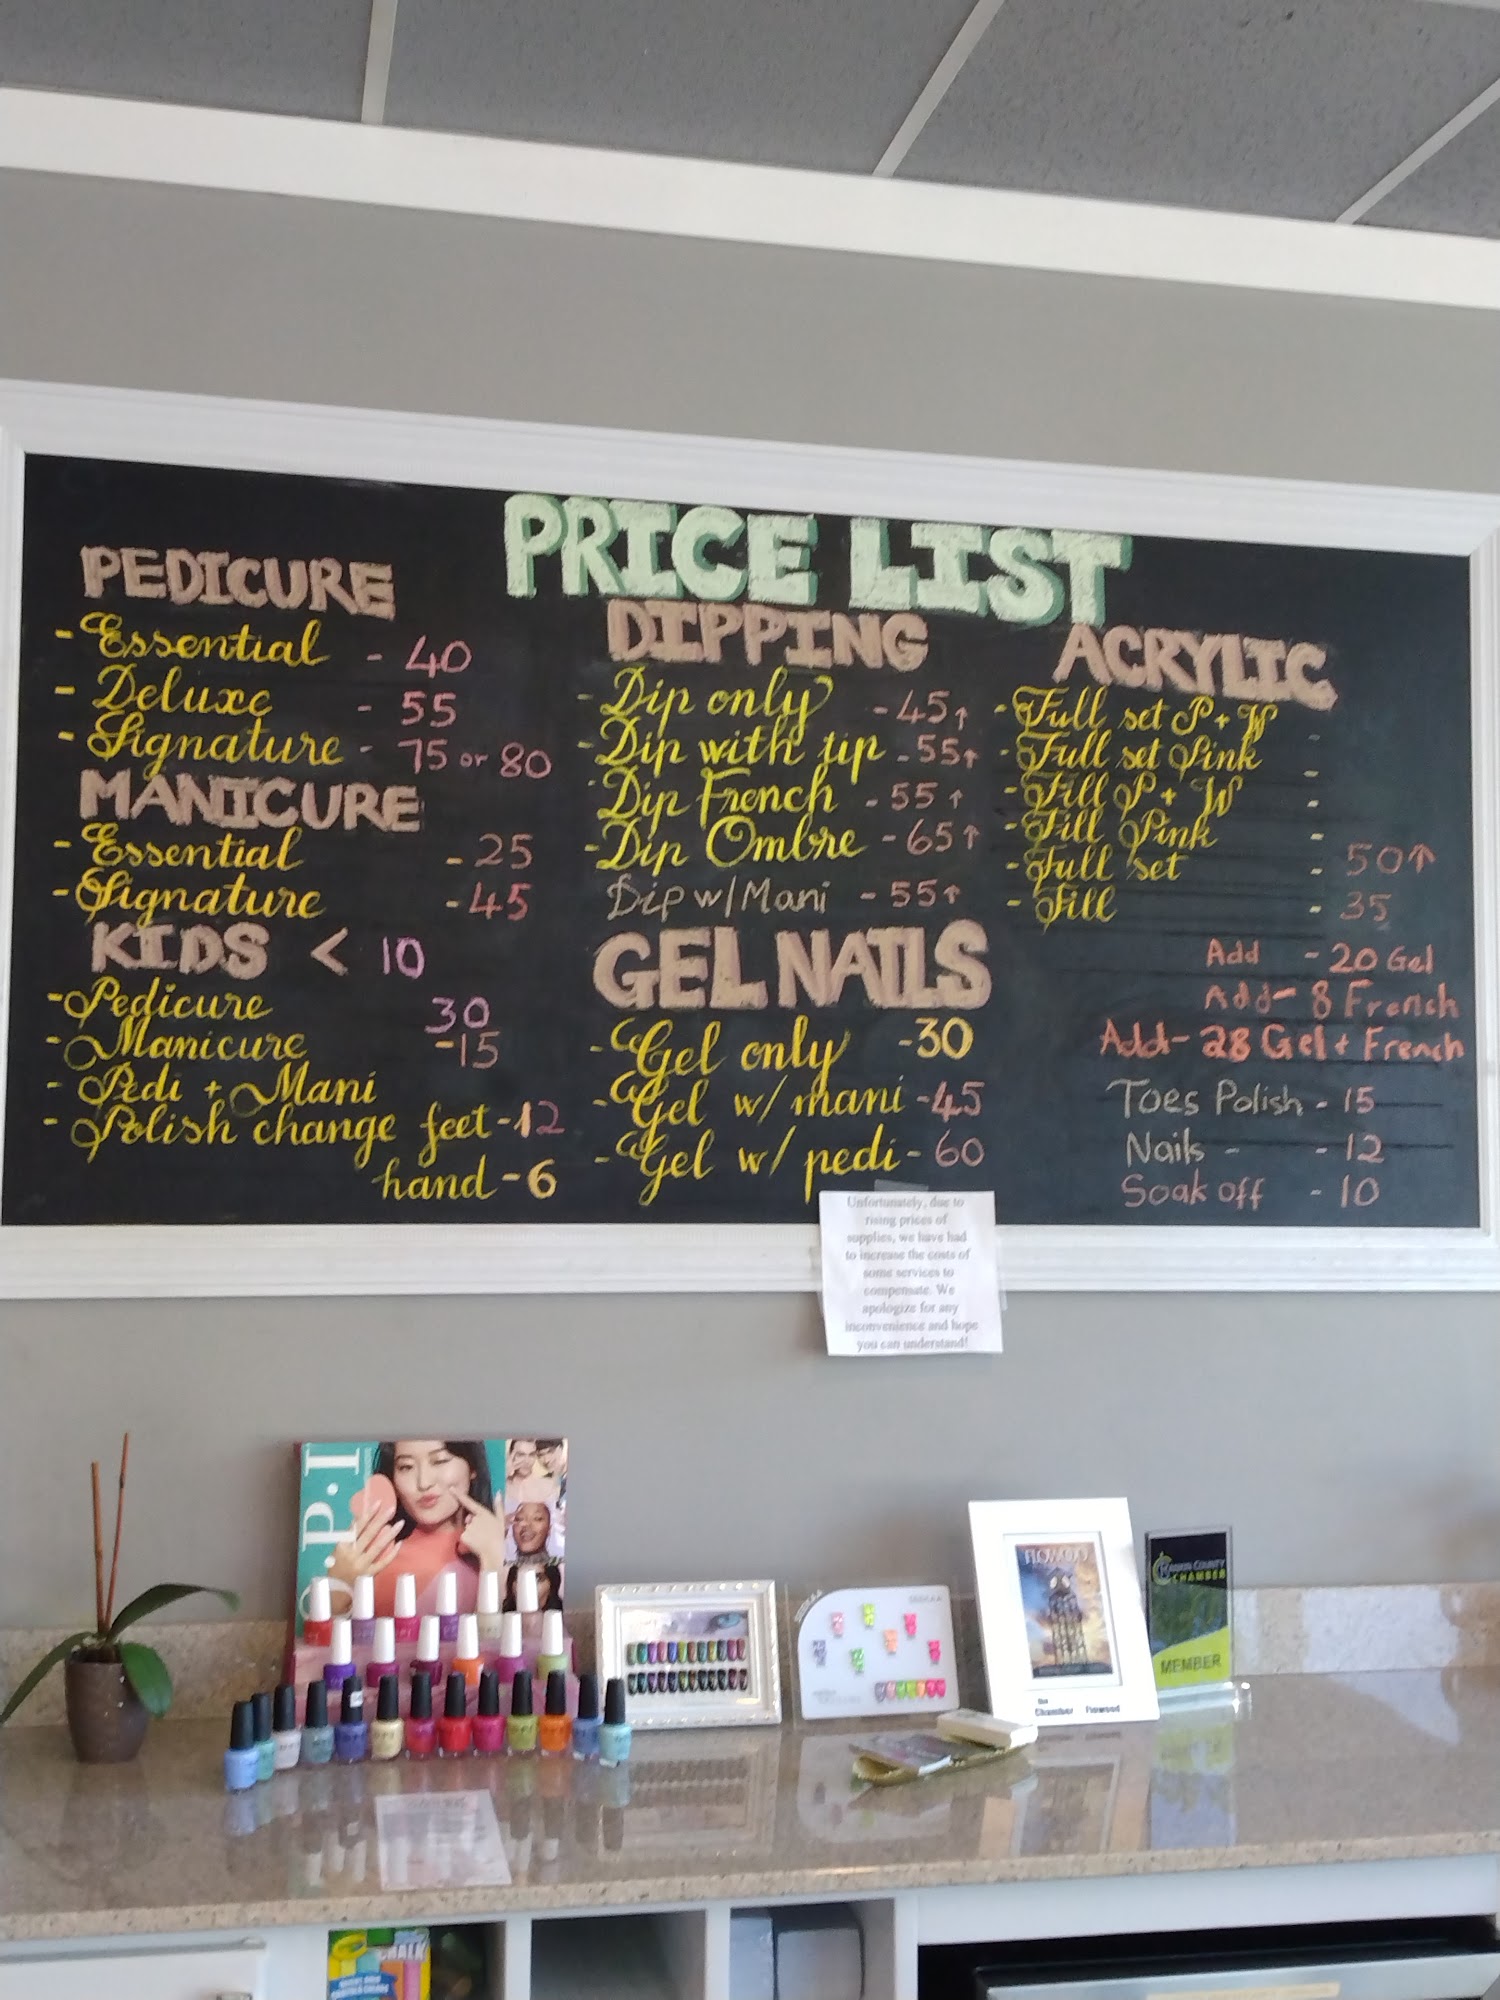 PRICE LIST
PEDICURE
- Essential - 40
- Deluxe - 55
- Signature - 75 or 80
MANICURE
- Essential - 25
- Signature - 45
KIDS < 10
- Pedicure 30
- Manicure - 15
- Pedi + Mani
- Polish change feet - 12
hand - 6
DIPPING
- Dip only - 45↑
- Dip with tip - 55↑
- Dip French - 55↑
- Dip Ombre - 65↑
Dip w/Mani - 55↑
GEL NAILS
- Gel only - 30
- Gel w/ mani - 45
- Gel w/ pedi - 60
ACRYLIC
- Full set P + W -
- Full set Pink -
- Fill P + W -
- Fill Pink -
- Full set - 50↑
- Fill - 35
Add - 20 Gel
Add - 8 French
Add - 28 Gel + French
Toes Polish - 15
Nails - - 12
Soak off - 10
Unfortunately, due to
rising prices of
supplies, we have had
to increase the costs of
some services to
compensate. We
apologize for any
inconvenience and hope
you can understand!
O·P·I
FLOWOOD
the
Chamber Flowood
RANKIN COUNTY
CHAMBER
MEMBER
CHALK